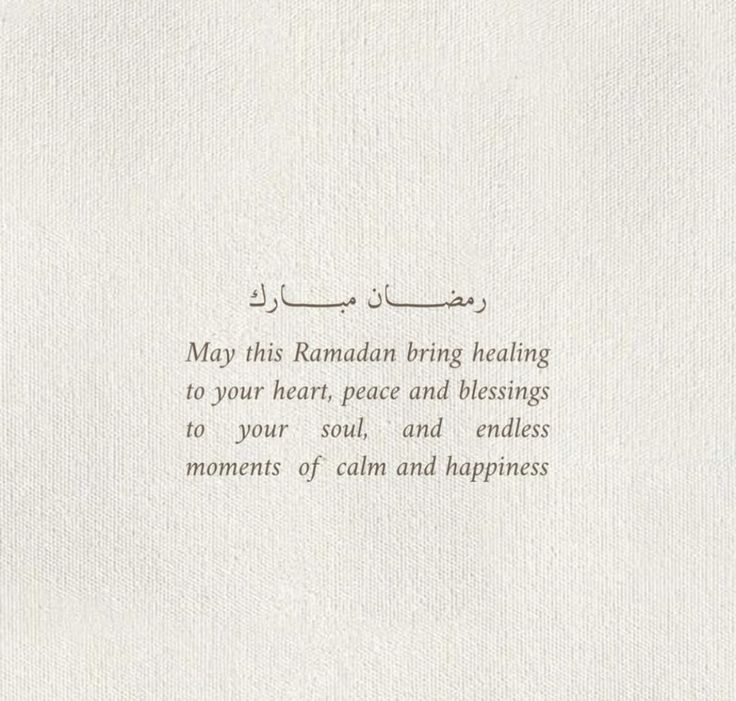 رمضان مبارك
May this Ramadan bring healing
to your heart, peace and blessings
to your soul, and endless
moments of calm and happiness